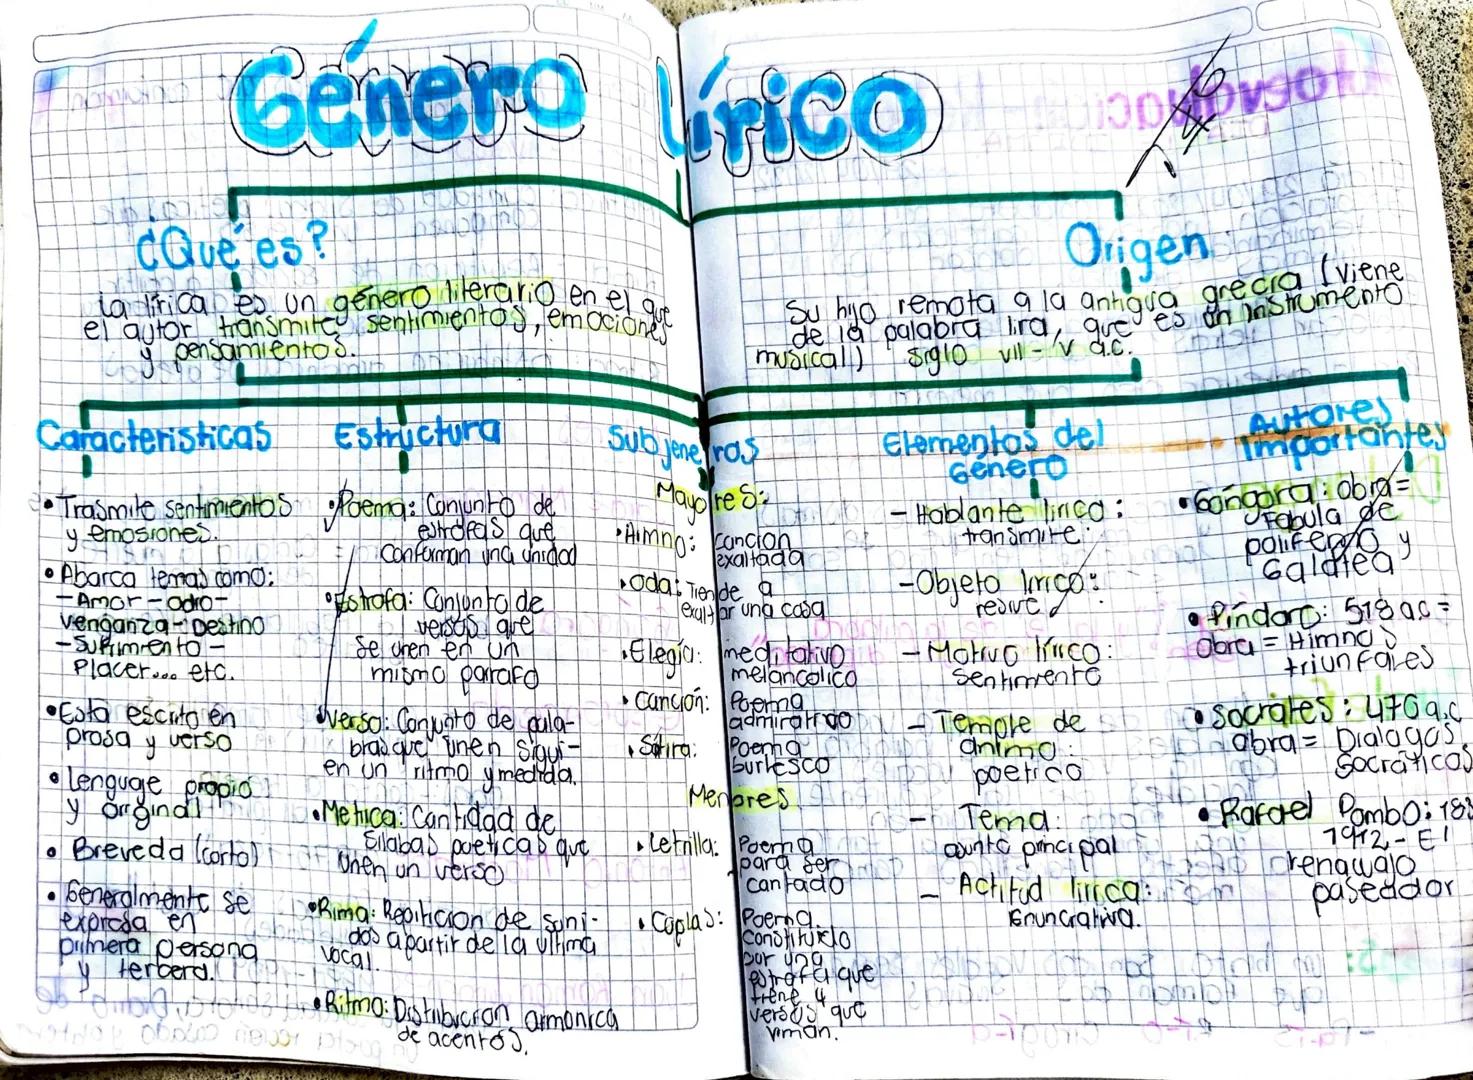 Género lírico
¿Qué es?
la lírica es un género literario en el que
el autor transmite sentimientos, emociones
y pensamientos.
Origen
Su hijo remota a la antigua grecia (viene
de la palabra lira, que es un instrumento
musical) siglo VII - V a.c.
Caracteristicas
• Trasmite sentimientos
y emosiones.
• Abarca temas como:
- Amor - odio -
venganza - Destino
- Sufrimiento -
Placer... etc.
• Esta escrito en
prosa y verso
• lenguaje propio
y original
• Breveda (corto)
• Generalmente se
expresa en
primera persona
y tercera.
Estructura
• Poema: Conjunto de
estrofas que
conforman una unidad
• Estrofa: Conjunto de
versos que
se unen en un
mismo parafo
• verso: Conjunto de pala-
bras que unen sigui-
en un ritmo y medida.
• Metrica: Cantidad de
silabas poeticas que
unen un verso
• Rima: Repiticion de soni-
dos apartir de la ultima
vocal.
• Ritmo: Distribucion armonica
de acentos.
Subjeneros
Mayores:
• Himno: cancion
exaltada
• oda: Tiende a
exaltar una casa
• Elegía: meditativo
melancolico
• Canción: Poema
admirativo
• Sátira: Poema
burlesco
Menores
• Letrilla: Poema
para ser
cantado
• Coplas: Poema
constituido
por una
estrofa que
tiene 4
versos que
riman.
Elementos del
Género
- Hablante lirico:
transmite
- Objeto lirico:
resive
- Motivo lírico:
sentimiento
- Temple de
ánimo:
poetico
- Tema:
asunto principal
- Actitud lirica:
Enunciativa.
Autores
Importantes
• Góngora: obra =
Fabula de
polifemo y
Galatea
• Píndaro: 518 a.c =
obra = Himnos
triunfales
• Socrates: 470 a.c
obra = Dialagos
Socráticos
• Rafael Pombo: 183
1912 - El
renacuajo
paseador